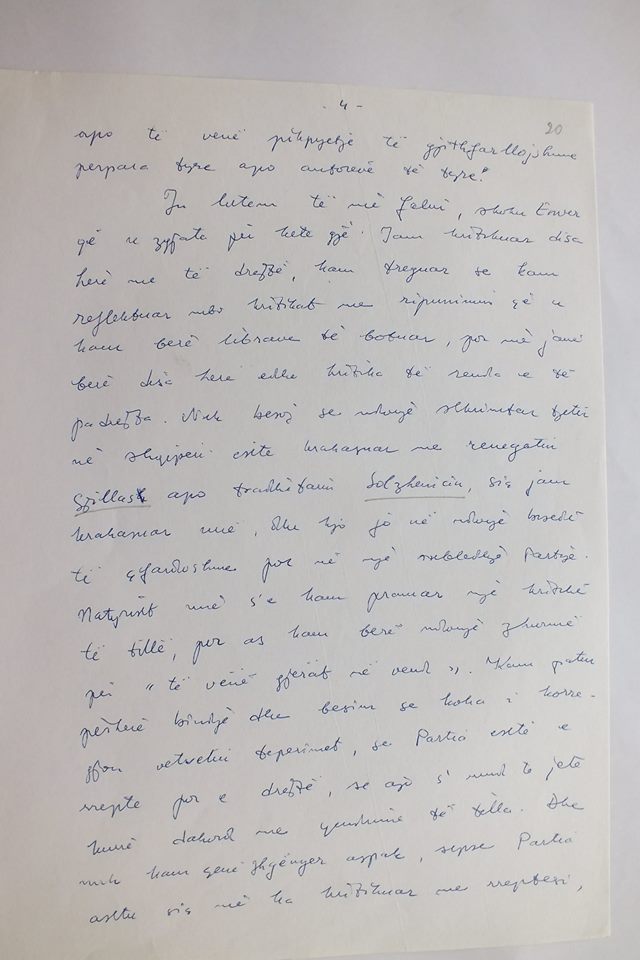 - 4 -
20
apo të venë pikpyetje të gjithfarllojshme
perpara tyre apo autorëve të tyre!
Ju lutem të më falni, shoku Enver
që u zgjata për kete gjë. Jam kritikuar disa
herë me të drejtë, kam treguar se kam
reflektuar mbi kritikat me ripunimin që u
kam berë librave të botuar, por më janë
berë disa herë edhe kritika të renda e të
padrejta. Nuk besoj se ndonjë shkrimtar tjetër
në Shqiperi eshte krahasuar me renegatin
Gjillas apo tradhëtarin Solzhenicin, siç jam
krahasuar unë, dhe kjo jo në ndonjë bisedë
të çfardoshme por në një mbledhje Partije.
Natyrisht unë s'e kam pranuar një kritikë
të tillë, por as kam berë ndonjë zhurmë
për "të vënë gjerat në vend". Kam patur
përherë bindje dhe besim se koha i korre-
gjon vetvetiu teprimet, se Partia eshtë e
rrepte por e drejtë, se ajo s'mund te jetë
kurrë dakord me qendrime të tilla. Dhe
nuk kam qenë zhgënjyer aspak, sepse Partia
ashtu siç më ka kritikuar me rreptesi,